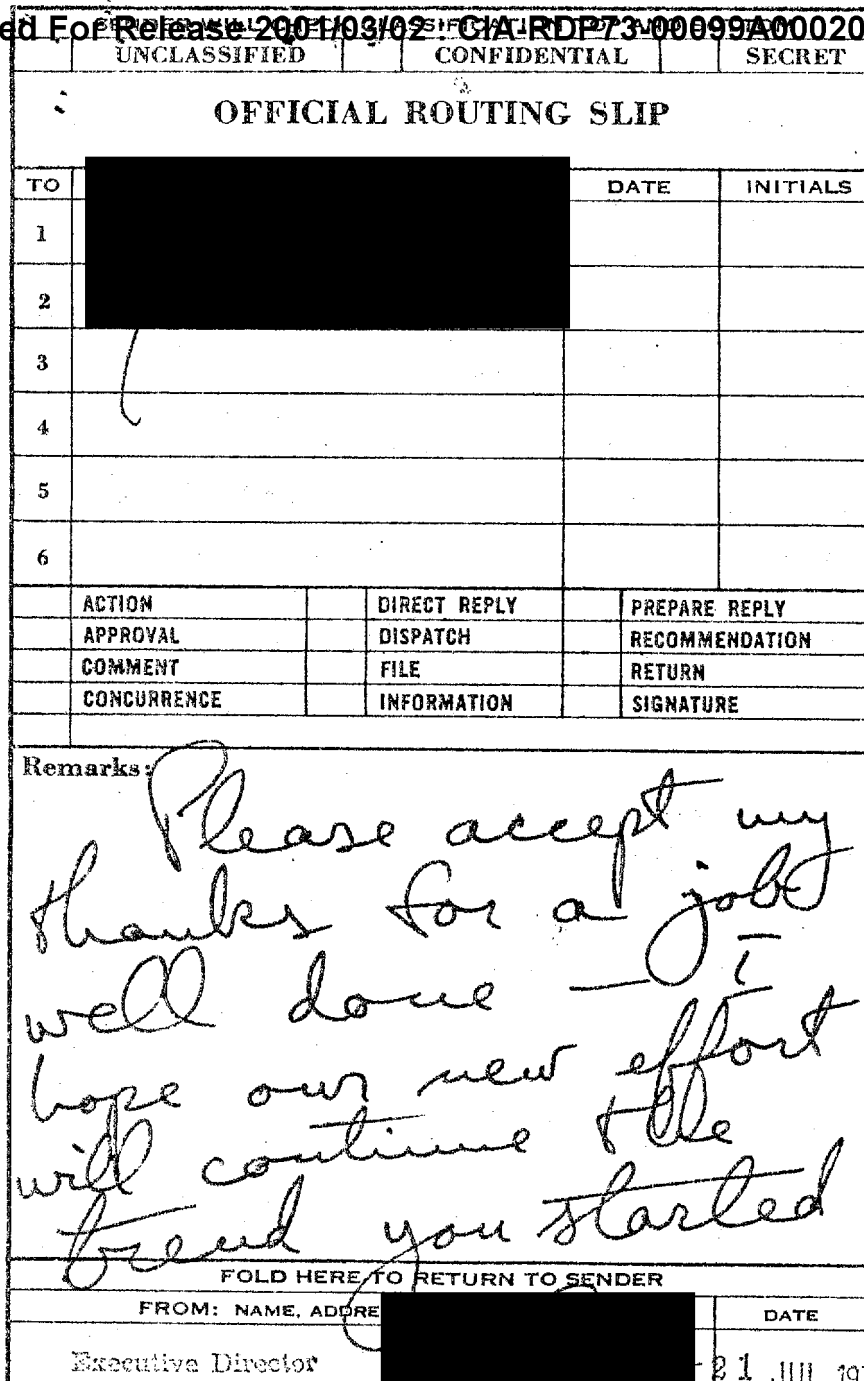 ed For Release 2001/03/02 : CIA-RDP73-00099A00020
SENDER WILL
UNCLASSIFIED CONFIDENTIAL SECRET
OFFICIAL ROUTING SLIP
TO DATE INITIALS
1
2
3
4
5
6
ACTION DIRECT REPLY PREPARE REPLY
APPROVAL DISPATCH RECOMMENDATION
COMMENT FILE RETURN
CONCURRENCE INFORMATION SIGNATURE
Remarks:
Please accept my
thanks for a job
well done — I
hope our new effort
will continue the
trend you started
FOLD HERE TO RETURN TO SENDER
FROM: NAME, ADDRE DATE
Executive Director 21 JUL 19